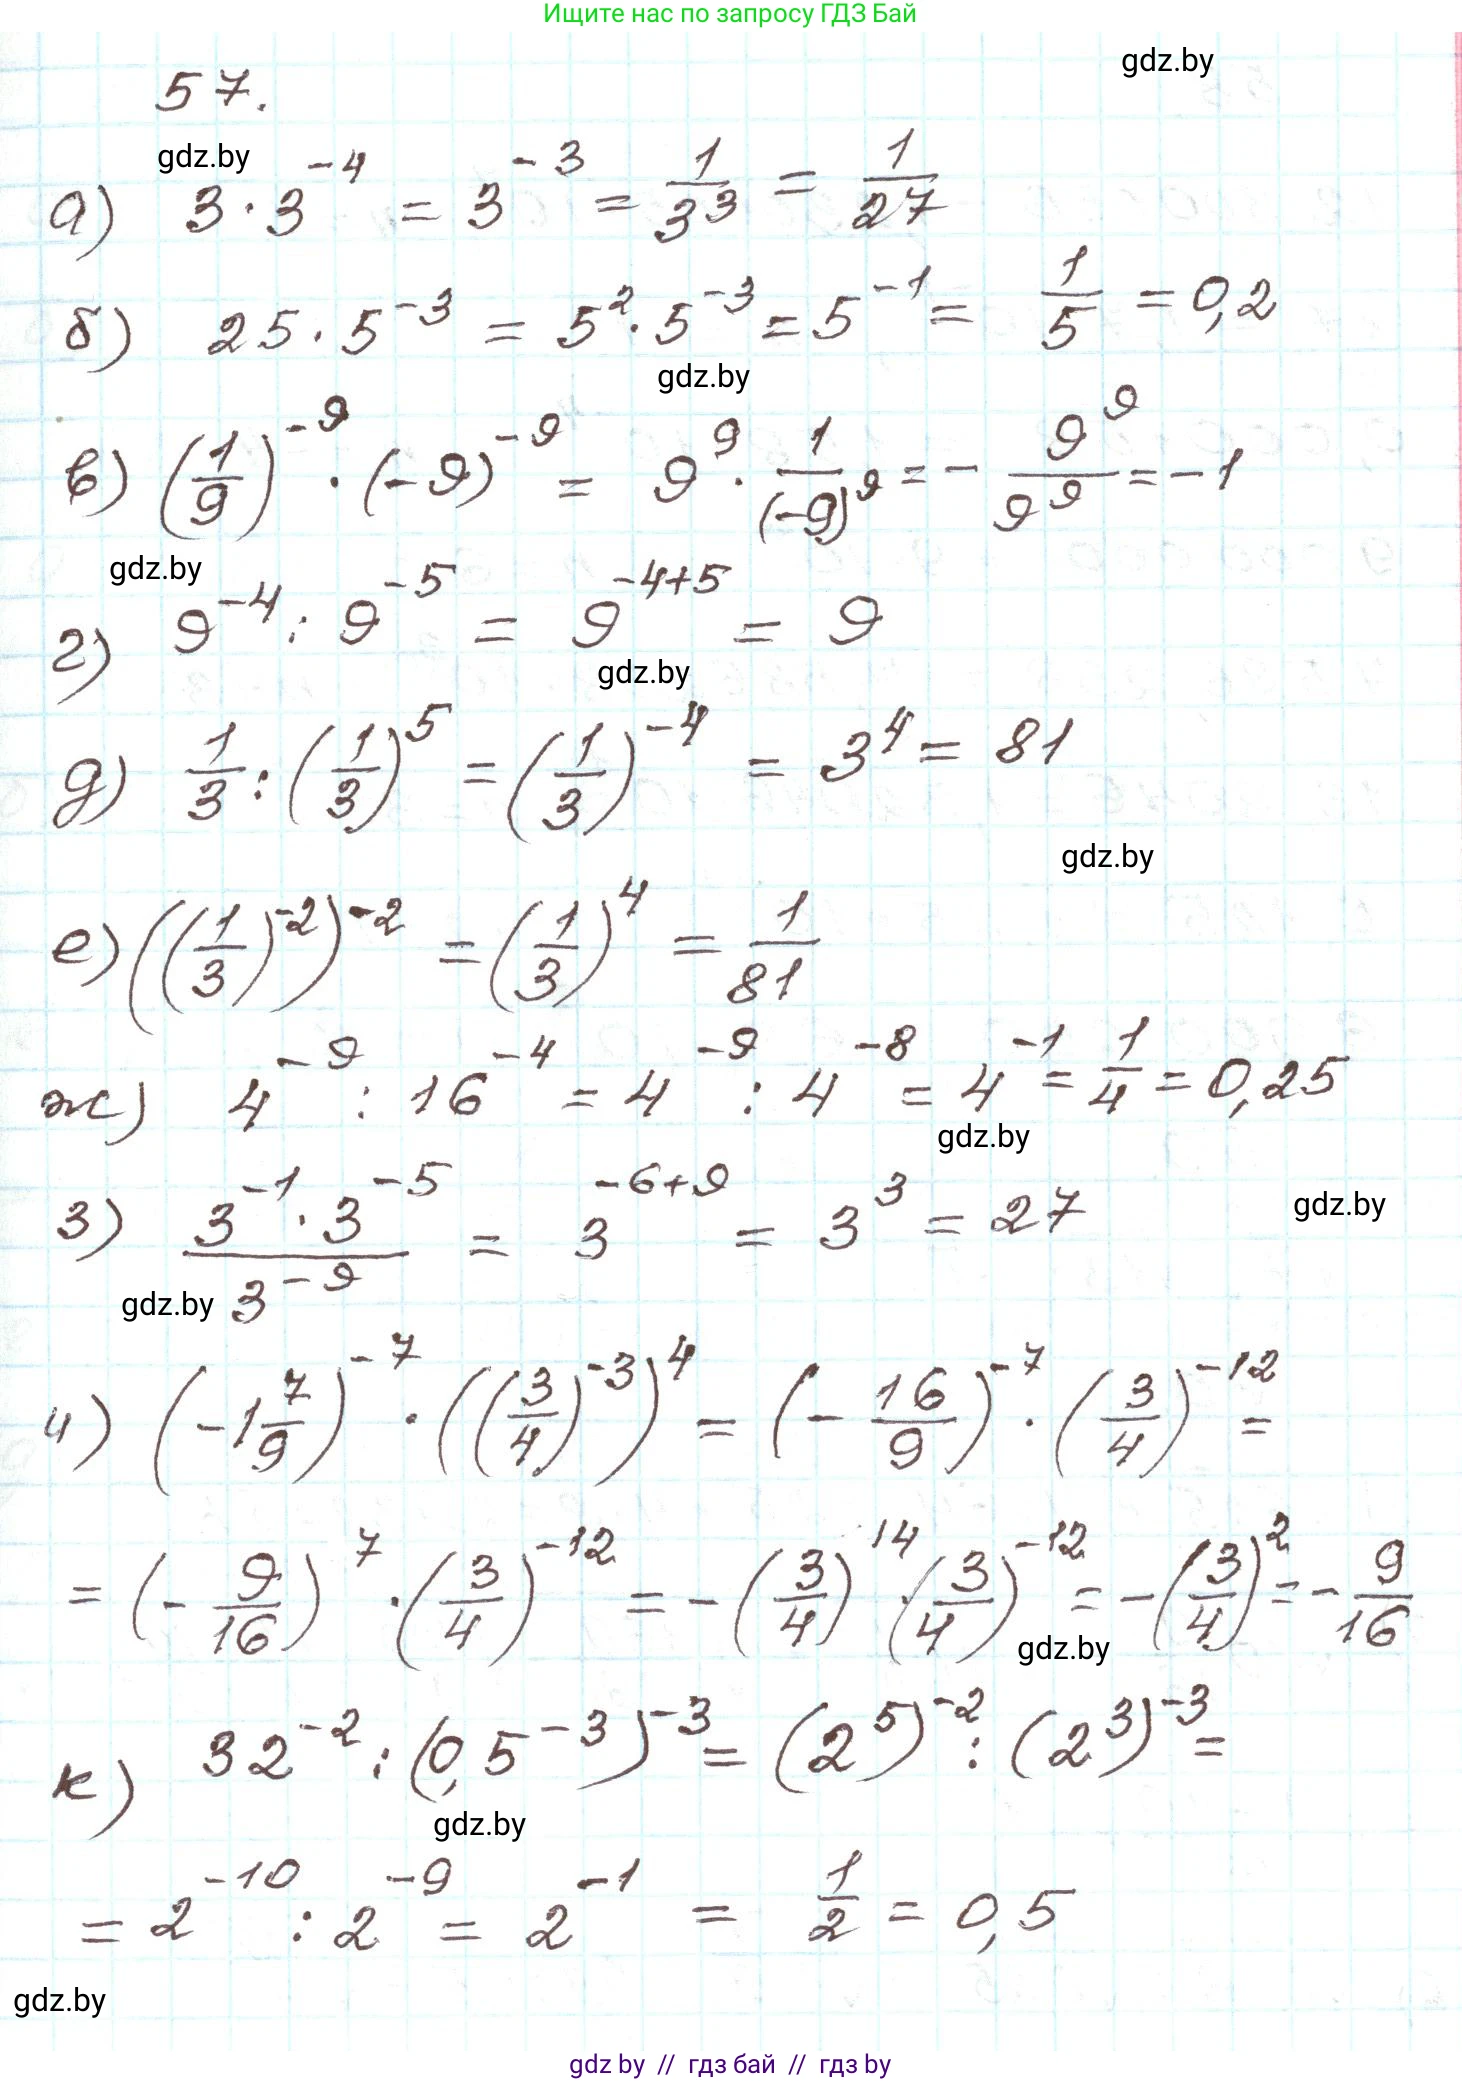 Ищите нас по запросу ГДЗ Бай
gdz.by
57.
gdz.by
а) 3 · 3^{-4} = 3^{-3} = 1/3^3 = 1/27
б) 25 · 5^{-3} = 5^2 · 5^{-3} = 5^{-1} = 1/5 = 0,2
gdz.by
в) (1/9)^{-9} · (-9)^{-9} = 9^9 · 1/(-9)^9 = - 9^9/9^9 = -1
gdz.by
г) 9^{-4} : 9^{-5} = 9^{-4+5} = 9
gdz.by
д) 1/3 : (1/3)^5 = (1/3)^{-4} = 3^4 = 81
gdz.by
е) ((1/3)^{-2})^{-2} = (1/3)^4 = 1/81
ж) 4^{-9} : 16^{-4} = 4^{-9} : 4^{-8} = 4^{-1} = 1/4 = 0,25
gdz.by
з) (3^{-1} · 3^{-5})/3^{-9} = 3^{-6+9} = 3^3 = 27
gdz.by
gdz.by
и) (-1 7/9)^{-7} · ((3/4)^{-3})^4 = (- 16/9)^{-7} · (3/4)^{-12} =
= (- 9/16)^7 · (3/4)^{-12} = - (3/4)^{14} · (3/4)^{-12} = - (3/4)^2 = - 9/16
gdz.by
к) 32^{-2} : (0,5^{-3})^{-3} = (2^5)^{-2} : (2^3)^{-3} =
gdz.by
= 2^{-10} : 2^{-9} = 2^{-1} = 1/2 = 0,5
gdz.by
gdz by // гдз бай // гдз by